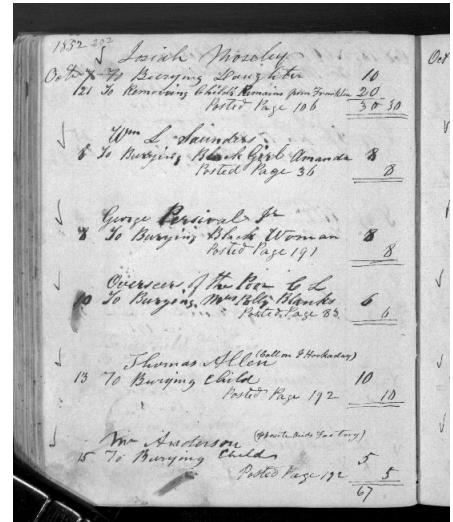 1852 202
Josiah Moseley
Octr 7 To Burying Daughter 10
21 To Removing Childs Remains from Franklin 20
Posted Page 106 30 30
Wm L. Saunders
8 To Burying Black Girl Amanda 8
Posted Page 36 8
George Percival Jr
8 To Burying Black Woman 8
Posted Page 191 8
Overseers of the Poor C L
10 To Burying Mrs Polly Blanks 6
Posted Page 83 6
Thomas Allen (Call on J Hockaday)
13 To Burying Child 10
Posted Page 192 10
Mr Anderson Factory)
15 To Burying Child 5
Posted Page 192 5
67
Oct